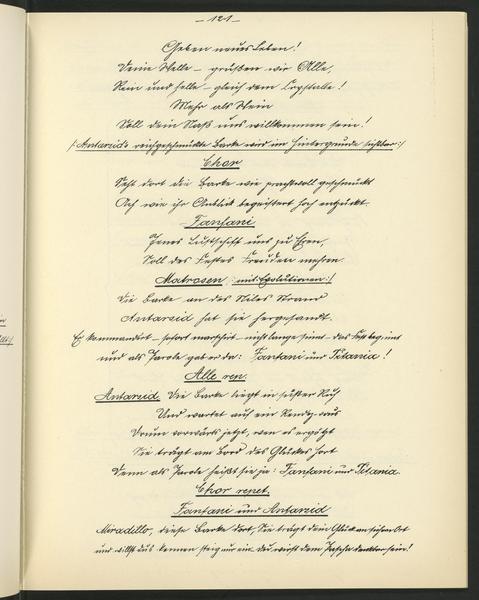 - 121 -
Geben neues Leben!
Deine Welle - grüßen wir Alle,
Rein und helle - gleich dem Crystalle!
Mehr als Wein
Soll dein Naß uns willkommen sein!
/: Antarsid's reichgeschmückte Barke wird im Hintergrunde sichtbar :/
Chor
Seht dort die Barke wie prachtvoll geschmückt
Ach wie ihr Anblick begeistert hoch entzückt.
Fanfani
Jenes Lustschiff uns zu Ehren,
Soll des Festes Freuden mehren.
Matrosen /: mit Evolutionen :/
Die Barke an des Niles Strand
Antarsid hat sie hergesandt.
Er kommandirt - sofort marschirt - nicht lange säumt - das Fest beginnt
und als Parole gab er da: Fanfani und Titania!
Alle rep.
Antarsid. Die Barke liegt in süßer Ruh
Und wartet auf ein Rendez-vous
Drum vorwärts jetzt, wen es ergötzt
Sie trägt am Bord des Glückes Hort
Denn als Parole heißt sie ja: Fanfani und Titania.
Chor repet.
Fanfani und Antarsid
Miradillo, diese Barke dort, Sie trägt dein Glück an sichern Ort
und willst das kennen steig nur ein du wirst dem Pascha dankbar sein!